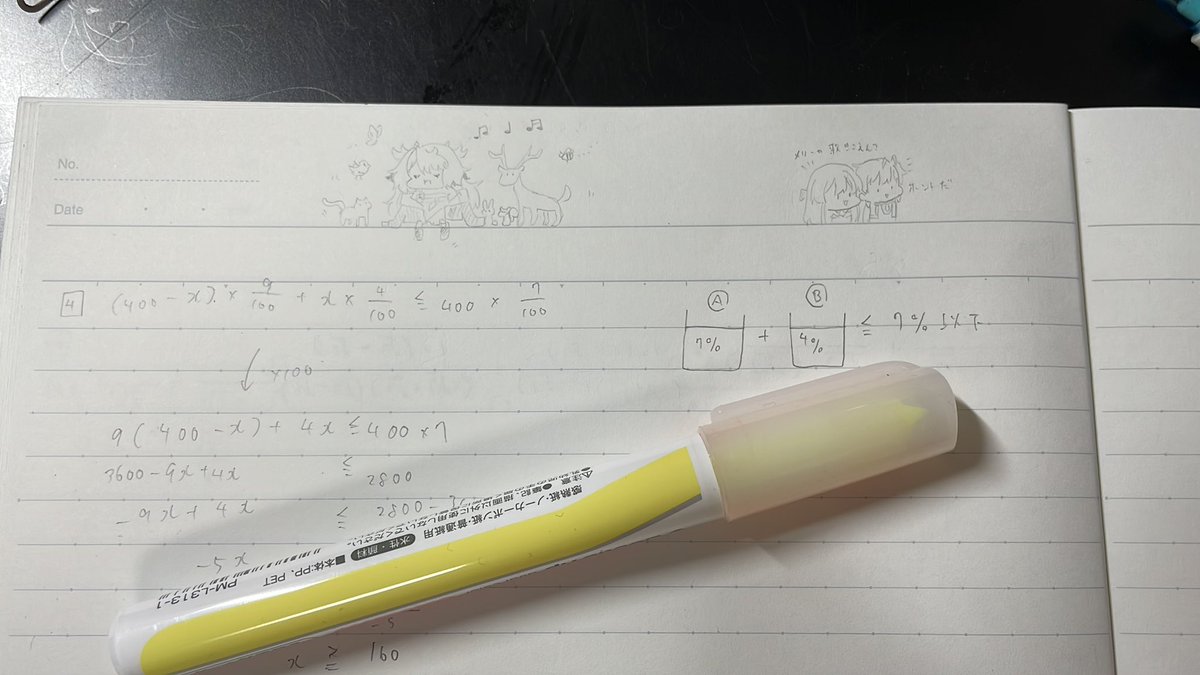 No.
Date
メリーの歌きこえんで
ホントだ
4 (400 - x) × 9/100 + x × 4/100 ≧ 400 × 7/100
Ⓐ Ⓑ
7% + 4% ≧ 7% 以上
×100
9(400 - x) + 4x ≧ 400×7
3600 - 9x + 4x ≧ 2800
- 9x + 4x ≧ 2800 -
- 5x
- 5
x ≧ 160
感熱紙・ノーカーボン紙・普通紙用
水性・顔料
■本体:PP, PET
PM-L313-1
⚠注意